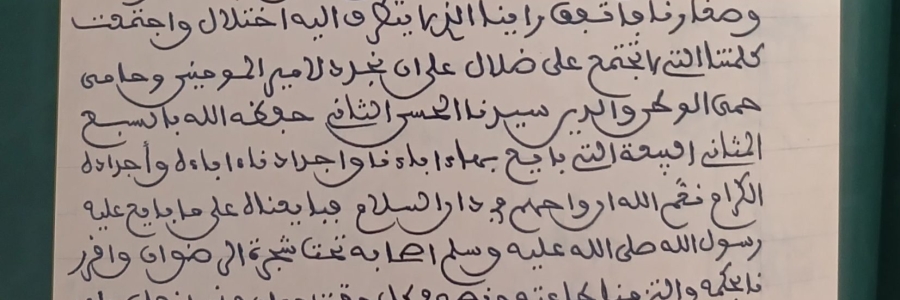 وصغارنا فاتفق راينا الذي لا يتطرق اليه اختلال واجتمعت
كلمتنا التي لا تجتمع على ضلال على ان نجدد لامير المومنين وحامي
حمى الوطن والدين سيدنا الحسن الثاني حفظه الله بالسبع
المثاني البيعة التي بايع بها ءاباءنا واجدادنا ءاباءه وأجداده
الكرام نعم الله ارواحهم في دار السلام فبايعناه على ما بايع عليه
رسول الله صلى الله عليه وسلم اصحابه تحت شجرة الرضوان واقررنا
بحكمه والتزمنا طاعته ونصحه في كل وقت